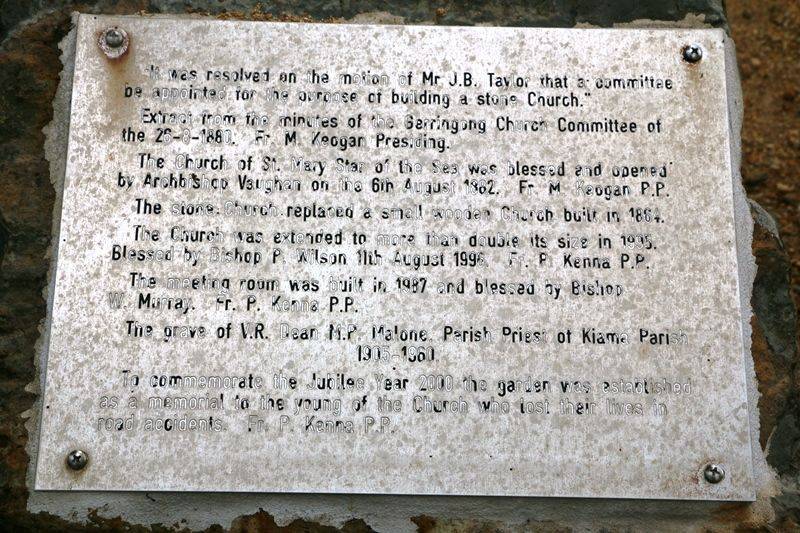 "It was resolved on the motion of Mr J.B. Taylor that a committee
be appointed for the purpose of building a stone Church."
Extract from the minutes of the Gerringong Church Committee of
the 26-9-1880. Fr. M. Keogan Presiding.
The Church of St. Mary Star of the Sea was blessed and opened
by Archbishop Vaughan on the 6th August 1882. Fr. M. Keogan P.P.
The stone Church replaced a small wooden Church built in 1864.
The Church was extended to more than double its size in 1995.
Blessed by Bishop P. Wilson 11th August 1996. Fr. P. Kenna P.P.
The meeting room was built in 1987 and blessed by Bishop
W. Murray. Fr. P. Kenna P.P.
The grave of V.R. Dean M.P. Malone. Parish Priest of Kiama Parish
1905-1960.
To commemorate the Jubilee Year 2000 the garden was established
as a memorial to the young of the Church who lost their lives in
road accidents. Fr. P. Kenna P.P.